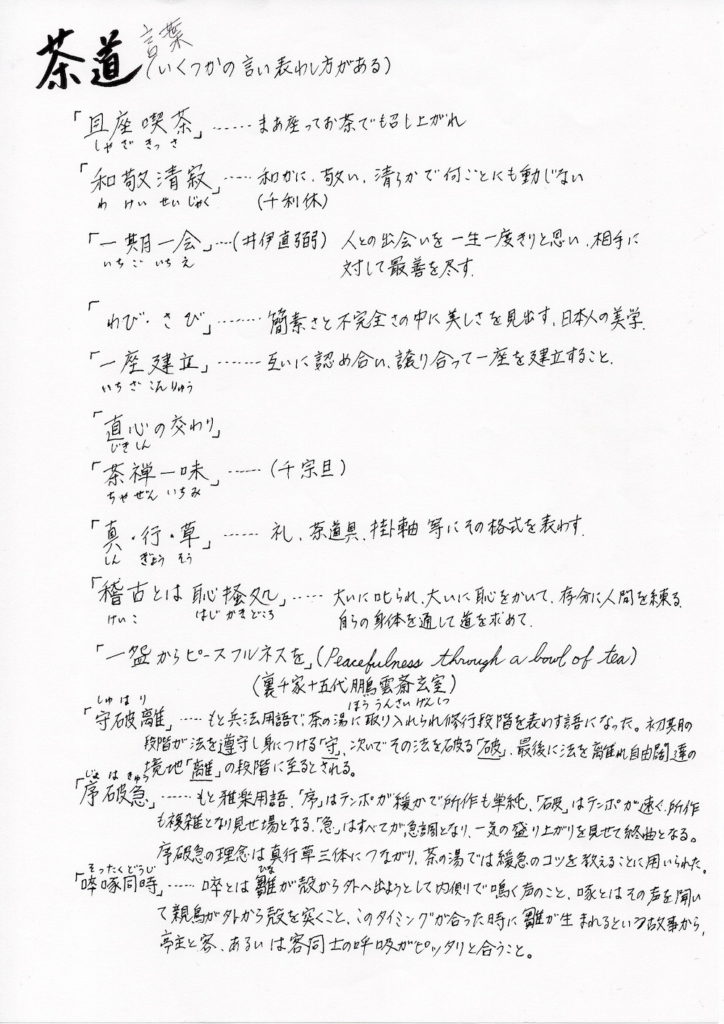 茶道 言葉
(いくつかの言い表わし方がある)
「且座喫茶」……まあ座ってお茶でも召し上がれ
しゃ ざ きっ さ
「和敬清寂」……和かに、敬い、清らかで何ごとにも動じない
わ けい せい じゃく (千利休)
「一期一会」…(井伊直弼) 人との出会いを一生一度きりと思い、相手に
いち ご いち え 対して最善を尽す.
「わび・さび」……簡素さと不完全さの中に美しさを見出す、日本人の美学.
「一座建立」……互いに認め合い、譲り合って一座を建立すること.
いち ざ こんりゅう
「直心の交わり」
じきしん
「茶禅一味」……(千宗旦)
ちゃ ぜん いち み
「真・行・草」……礼、茶道具、掛軸 等にその格式を表わす.
しん ぎょう そう
「稽古とは 恥掻処」……大いに叱られ、大いに恥をかいて、存分に人間を練る.
けい こ はじ かき どころ 自らの身体を通して道を求めて.
「一盌からピースフルネスを」(Peacefulness through a bowl of tea)
(裏千家十五代鵬雲斎玄室)
ほう うんさい げんしつ
しゅ は り
「守破離」……もと兵法用語で、茶の湯に取り入れられ修行段階を表わす語になった。初期の
段階が法を遵守し身につける「守」、次いでその法を破る「破」、最後に法を離れ自由闊達の
境地「離」の段階に至るとされる。
じょ は きゅう
「序破急」……もと雅楽用語、「序」はテンポが緩かで所作も単純、「破」はテンポが速く、所作
も複雑となり見せ場となる、「急」はすべてが急調となり、一気の盛り上がりを見せて終曲となる。
序破急の理念は真行草三体につながり、茶の湯では緩急のコツを教えることに用いられた。
そったくどうじ
「啐啄同時」……啐とは雛が殻から外へ出ようとして内側で鳴く声のこと、啄とはその声を聞い
ひな
て親鳥が外から殻を突くこと、このタイミングが合った時に雛が生まれるという故事から、
亭主と客、あるいは客同士の呼吸がピッタリと合うこと。